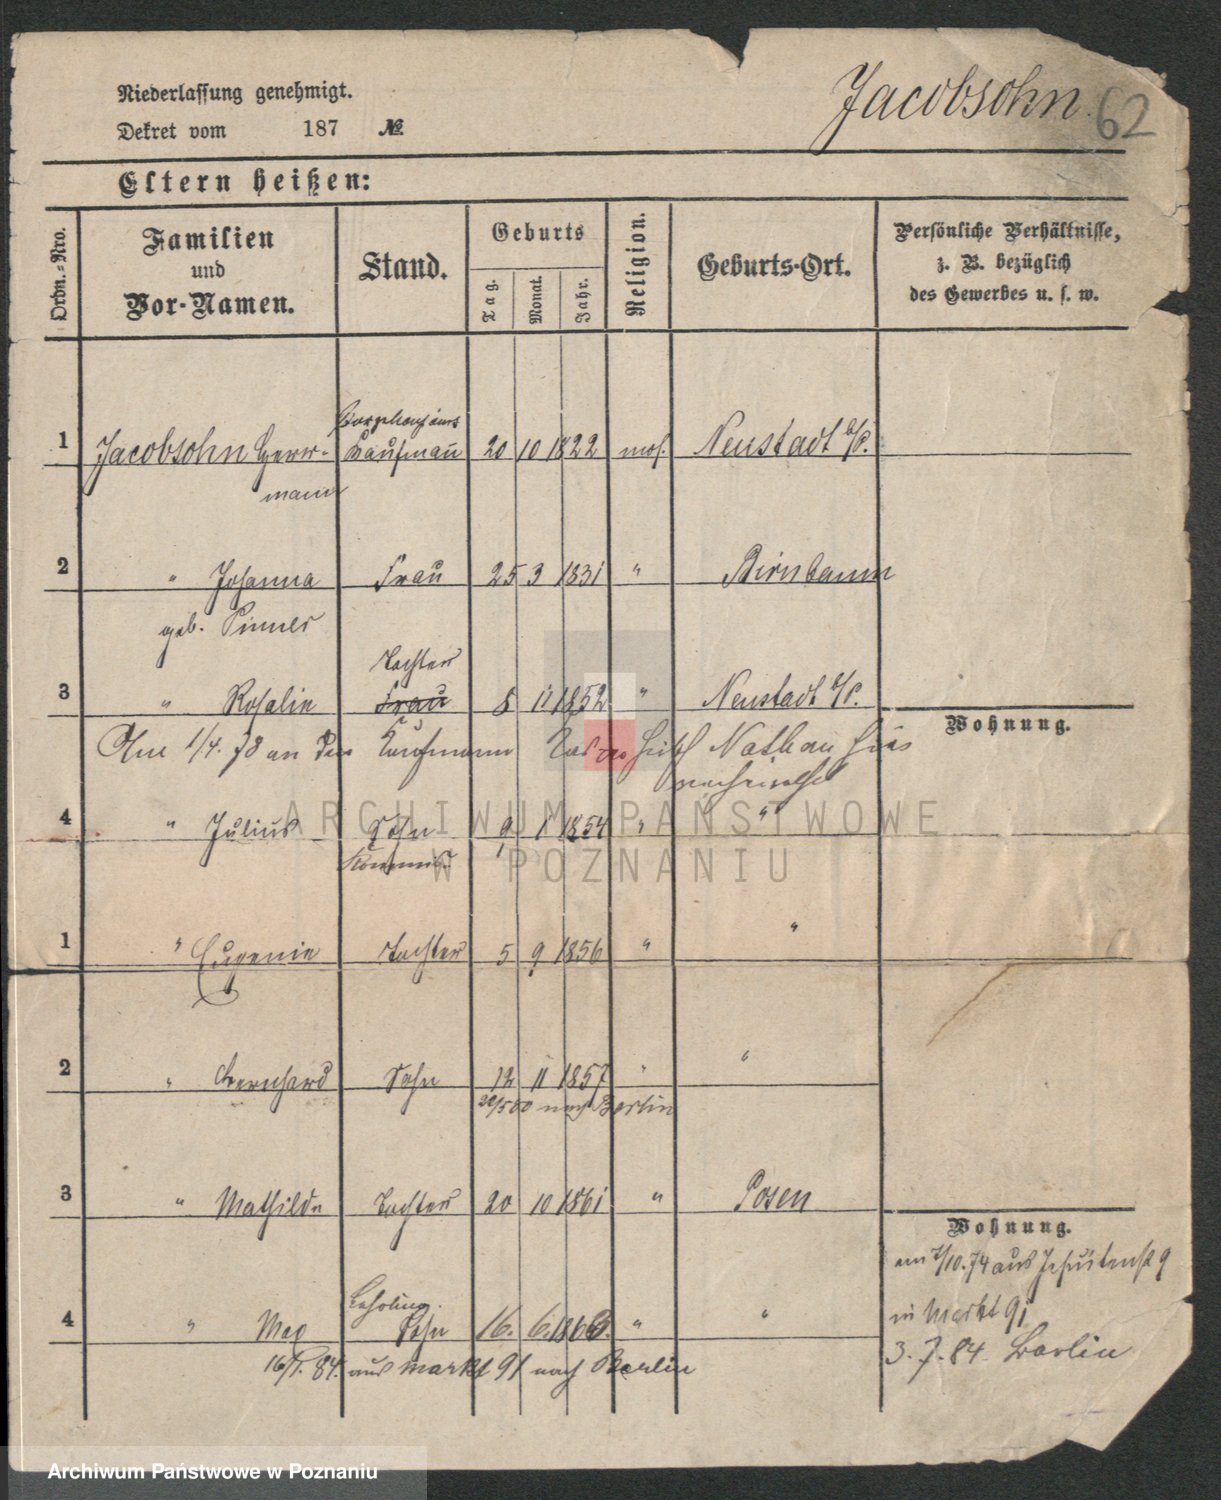 Niederlassung genehmigt.
Dekret vom 187 №
Jacobsohn
62
Eltern heißen:
Ordn.-Nro.
Familien und Vor-Namen.
Stand.
Geburts
Tag.
Monat.
Jahr.
Religion.
Geburts-Ort.
Persönliche Verhältnisse,
z. B. bezüglich
des Gewerbes u. s. w.
1 Jacobsohn Herr- Kaufmann 20 10 1822 mos. Neustadt a/P.
mann
2 " Johanna Frau 25 3 1831 " Birnbaum
geb. Pinner
Tochter
3 " Rosalie Frau 8 11 1852 " Neustadt a/P.
Wohnung.
Am 1/4. 78 an den Kaufmann Nathan
4 " Julius Sohn 9 1854 " "
Kommis
1 " Eugenie Tochter 5 9 1856 " "
2 " Bernhard Sohn 12 11 1857 " "
nach Berlin
3 " Mathilde Tochter 20 10 1861 " Posen
Wohnung.
am 7/10. 74 aus Jesuitenst 9
Lehrling.
4 " Max Sohn 16. 6. 1866. " "
in Markt 91
16/1. 84. aus Markt 91 nach Berlin
3. 7. 84 Berlin
ARCHIWUM PAŃSTWOWE
W POZNANIU
Archiwum Państwowe w Poznaniu